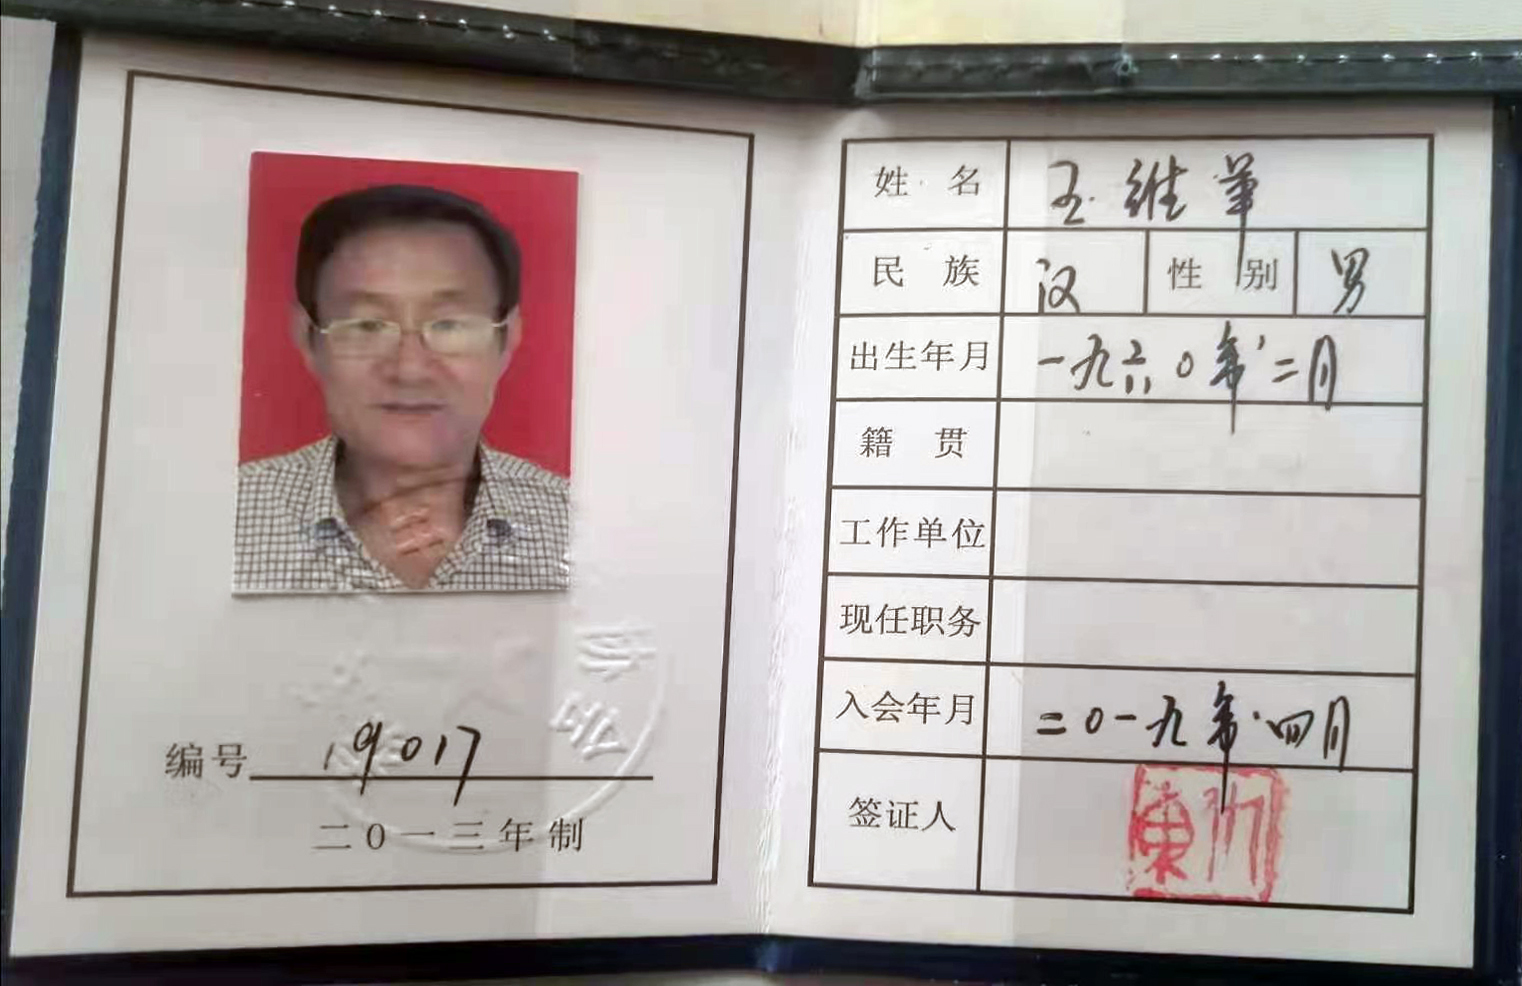 编号 19017
二〇一三年制
姓名 王维华
民族 汉 性别 男
出生年月 一九六〇年二月
籍贯
工作单位
现任职务
入会年月 二〇一九年四月
签证人